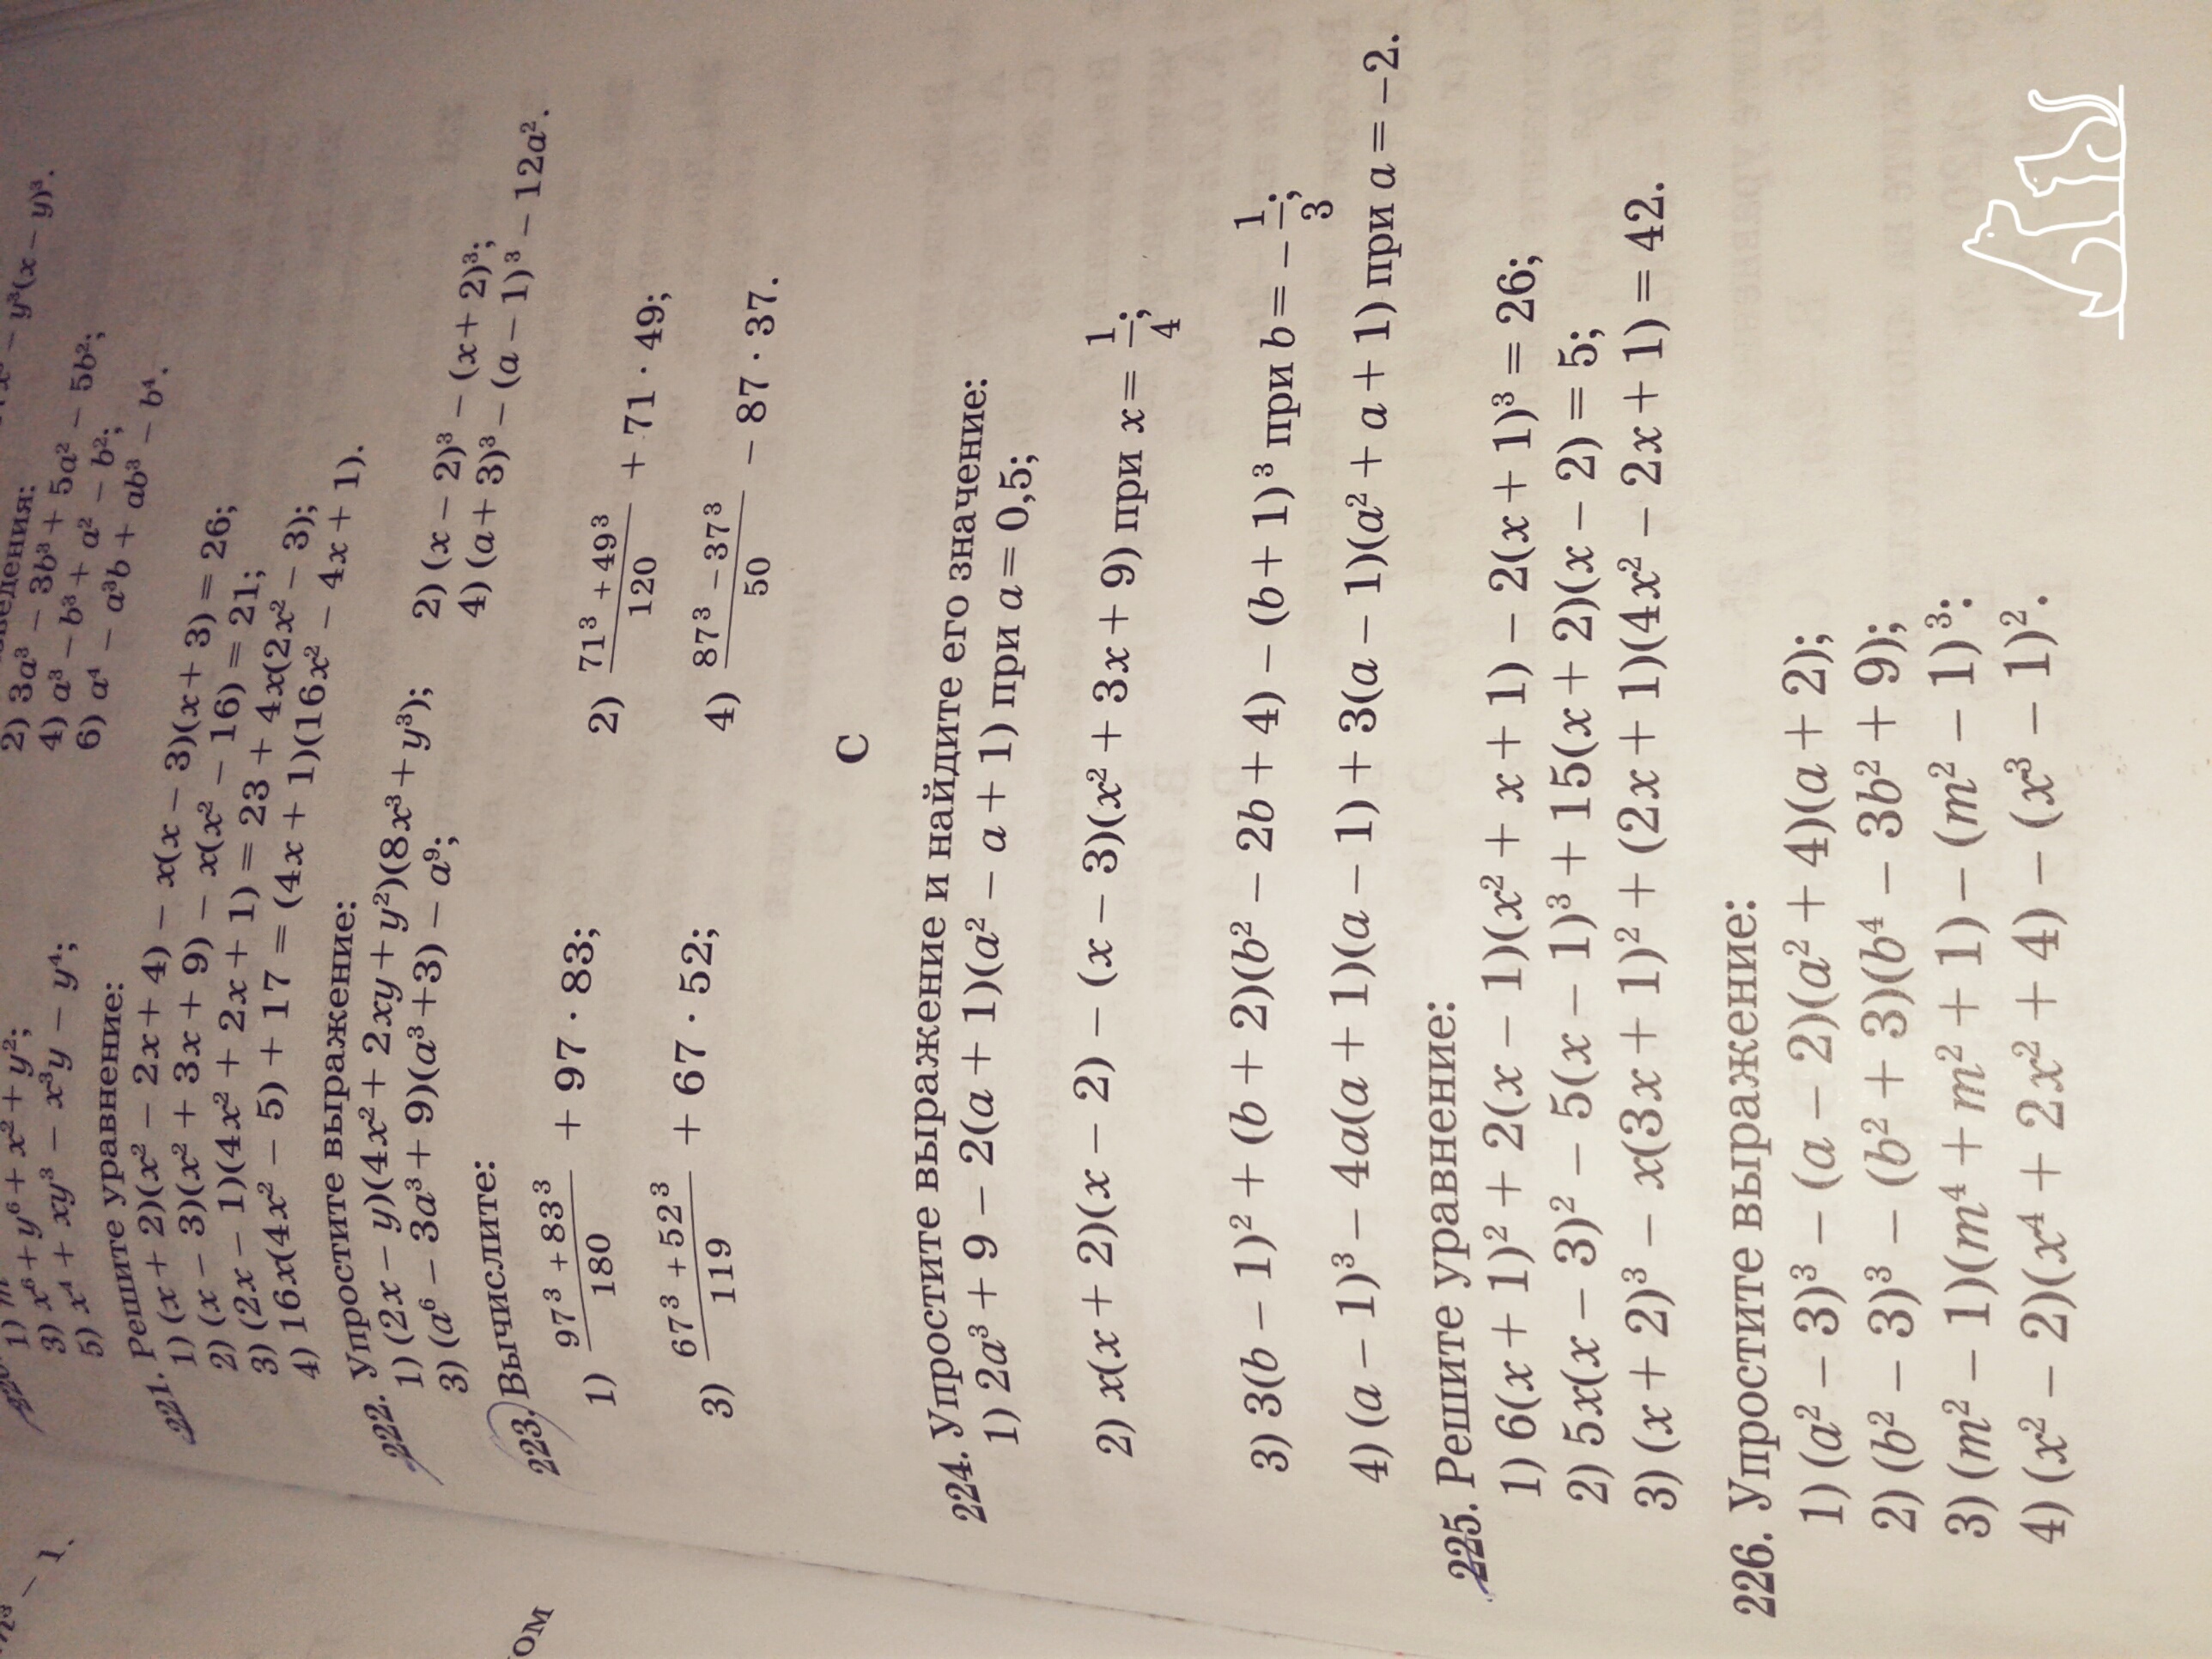 ведения:
2) 3a³ – 3b³ + 5a² – 5b²;
4) a³ – b³ + a² – b²;
6) a⁴ – a³b + ab³ – b⁴.
3) x⁶ + y⁶ + x² + y²;
5) x⁴ + xy³ – x³y – y⁴;
221. Решите уравнение:
1) (x + 2)(x² – 2x + 4) – x(x – 3)(x + 3) = 26;
2) (x – 3)(x² + 3x + 9) – x(x² – 16) = 21;
3) (2x – 1)(4x² + 2x + 1) = 23 + 4x(2x² – 3);
4) 16x(4x² – 5) + 17 = (4x + 1)(16x² – 4x + 1).
222. Упростите выражение:
1) (2x – y)(4x² + 2xy + y²)(8x³ + y³); 2) (x – 2)³ – (x + 2)³;
3) (a⁶ – 3a³ + 9)(a³ +3) – a⁹; 4) (a + 3)³ – (a – 1)³ – 12a².
223. Вычислите:
1) (97³ + 83³)/180 + 97 · 83; 2) (71³ + 49³)/120 + 71 · 49;
3) (67³ + 52³)/119 + 67 · 52; 4) (87³ – 37³)/50 – 87 · 37.
С
224. Упростите выражение и найдите его значение:
1) 2a³ + 9 – 2(a + 1)(a² – a + 1) при a = 0,5;
2) x(x + 2)(x – 2) – (x – 3)(x² + 3x + 9) при x = 1/4;
3) 3(b – 1)² + (b + 2)(b² – 2b + 4) – (b + 1)³ при b = –1/3;
4) (a – 1)³ – 4a(a + 1)(a – 1) + 3(a – 1)(a² + a + 1) при a = –2.
225. Решите уравнение:
1) 6(x + 1)² + 2(x – 1)(x² + x + 1) – 2(x + 1)³ = 26;
2) 5x(x – 3)² – 5(x – 1)³ + 15(x + 2)(x – 2) = 5;
3) (x + 2)³ – x(3x + 1)² + (2x + 1)(4x² – 2x + 1) = 42.
226. Упростите выражение:
1) (a² – 3)³ – (a – 2)(a² + 4)(a + 2);
2) (b² – 3)³ – (b² + 3)(b⁴ – 3b² + 9);
3) (m² – 1)(m⁴ + m² + 1) – (m² – 1)³.
4) (x² – 2)(x⁴ + 2x² + 4) – (x³ – 1)².